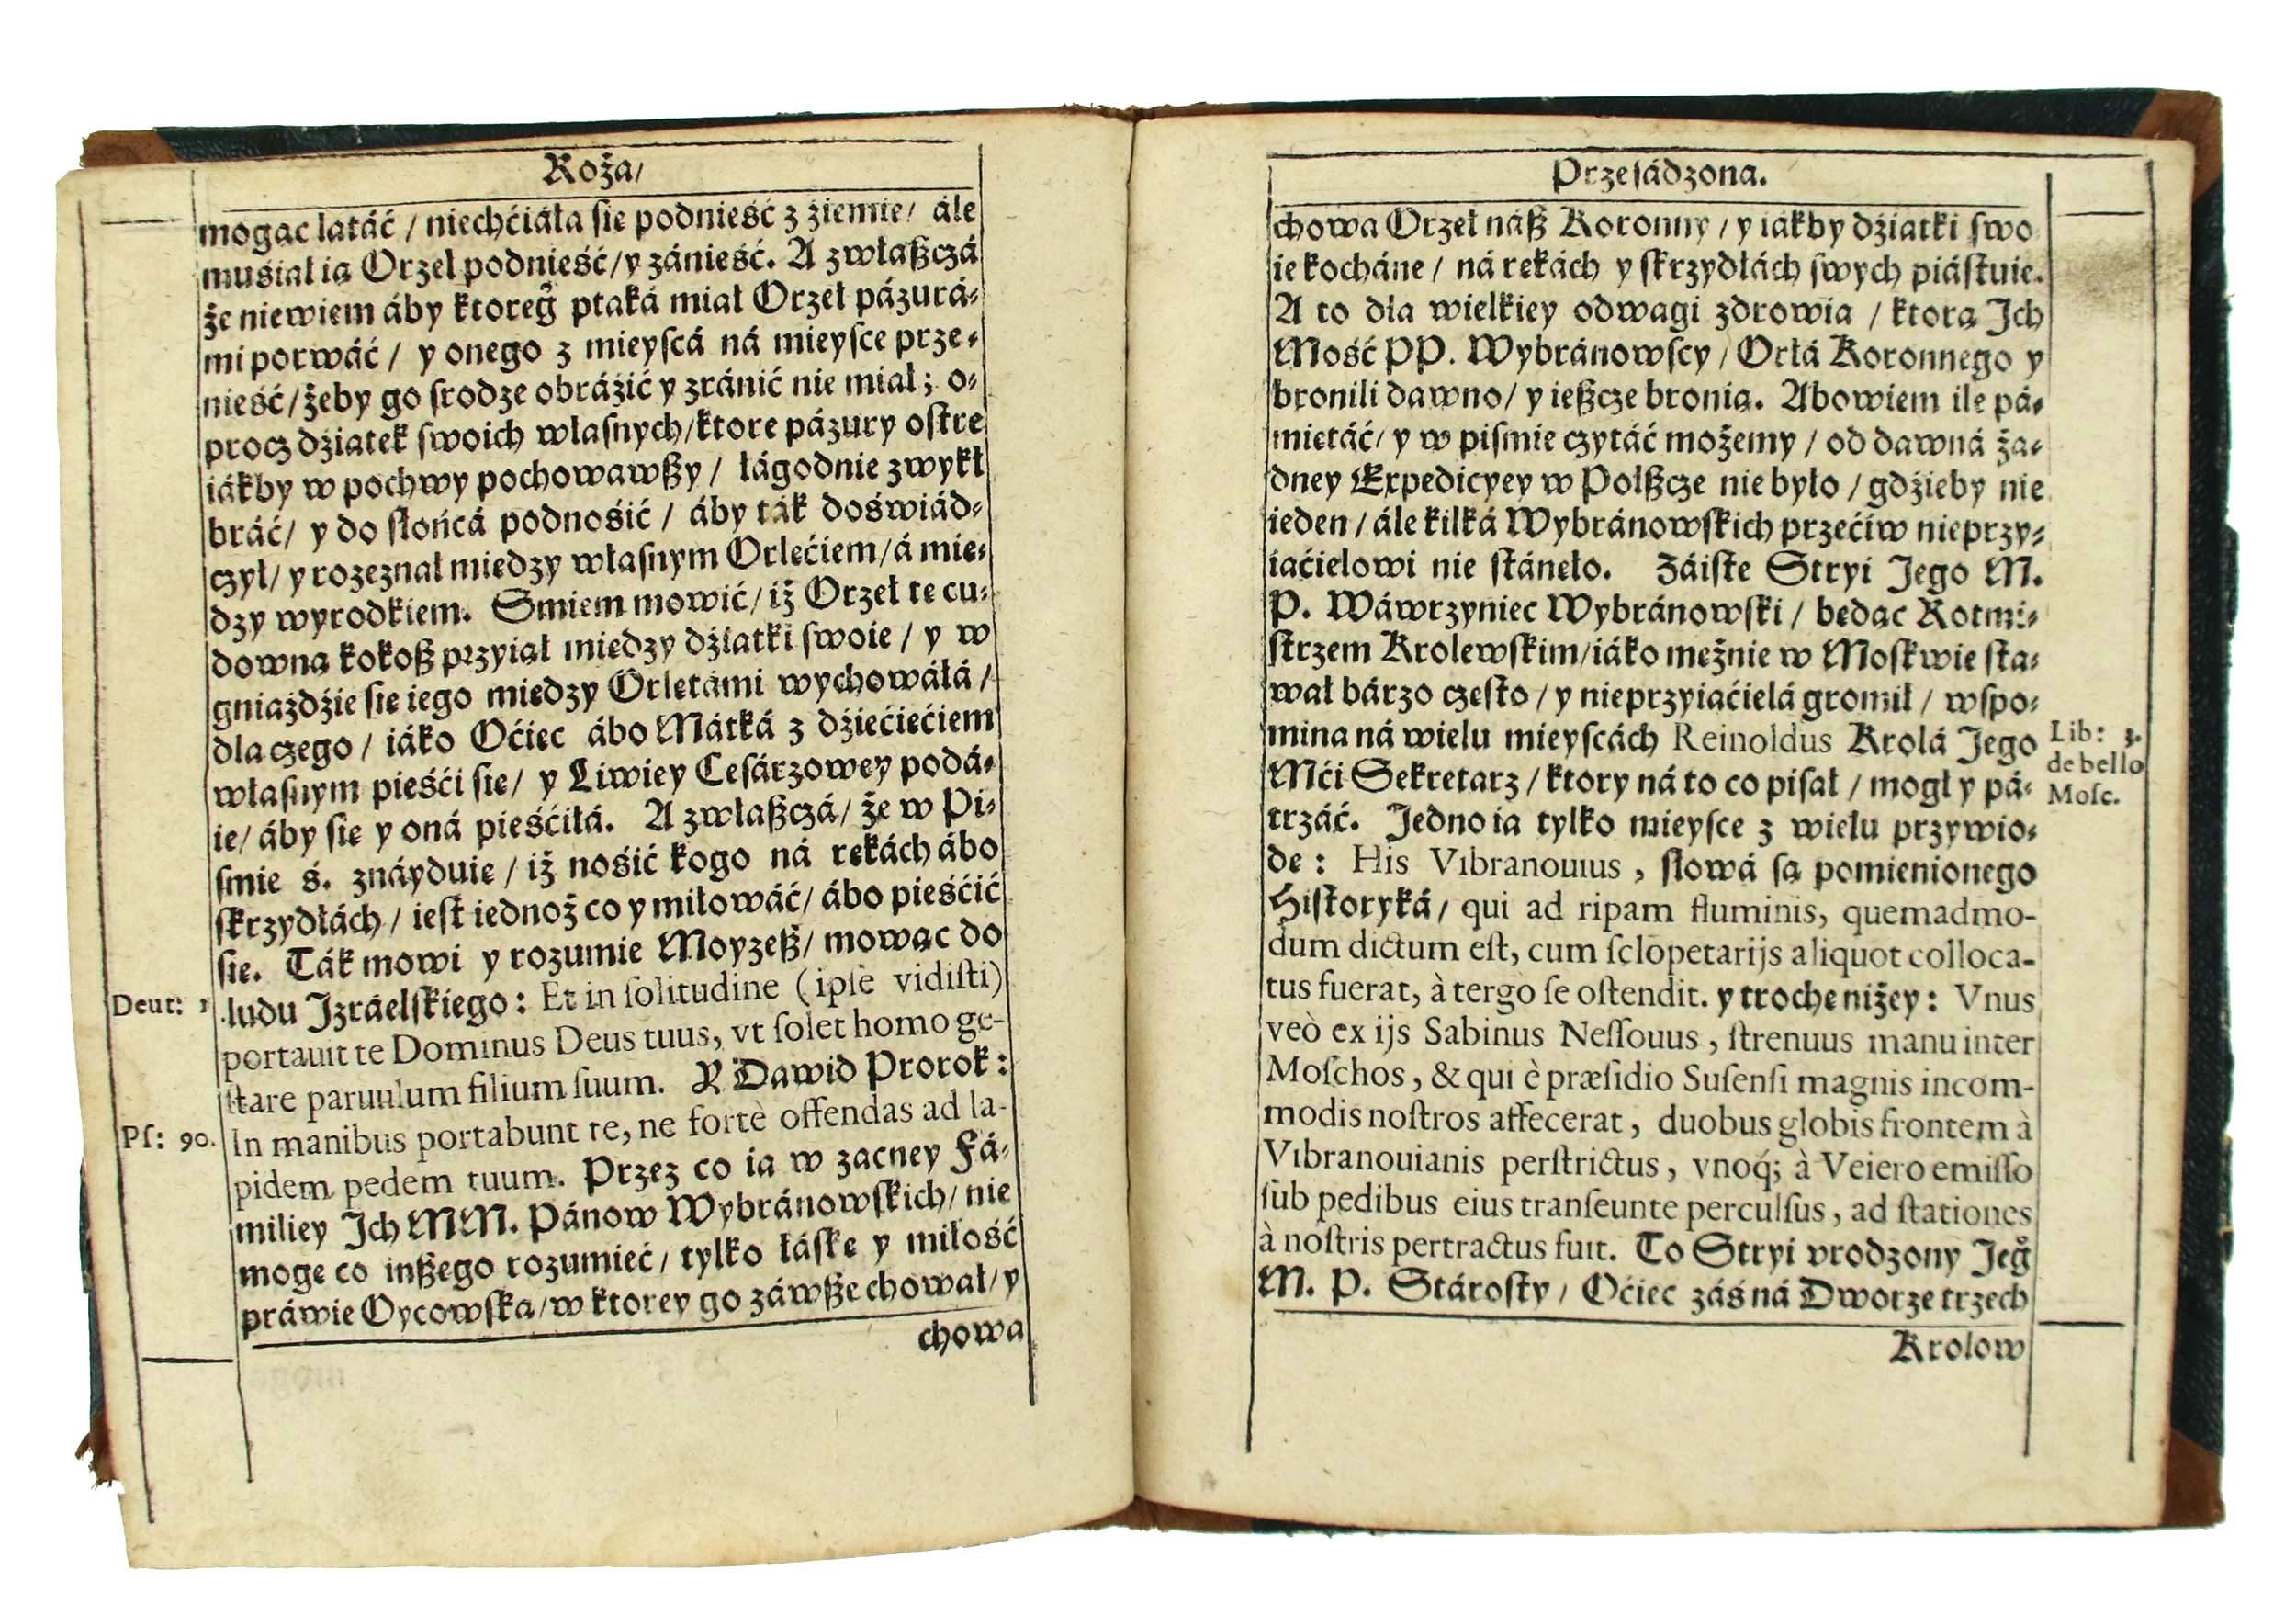 Roża/
mogąc latáć / niechćiáłá sie podnieść z źiemie / ále
muśiał ią Orzeł podnieść / y zánieść. A zwłaßczá
że niewiem áby ktoreg̊ ptaká miał Orzeł pázurá-
mi porwáć / y onego z mieyscá ná mieysce prze-
nieść / żeby go srodze obráźić y zránić nie miał; o-
procz dźiatek swoich własnych / ktore pázury ostre
iákby w pochwy pochowawßy / łágodnie zwykł
bráć / y do słońcá podnośić / áby ták doświád-
czył / y rozeznał miedzy własnym Orlećiem / á mie-
dzy wyrodkiem. Smiem mowić / iż Orzeł te cu-
downą kokoß przyiął miedzy dźiatki swoie / y w
gniaźdźie sie iego miedzy Orlętámi wychowáłá /
dla czego / iáko Oćiec ábo Mátká z dźiećiećiem
własnym pieśći sie / y Liwiey Cesárzowey podá-
ie / áby sie y oná pieśćiłá. A zwłaßczá / że w Pi-
śmie ś. znáyduie / iż nośić kogo ná rekách ábo
skrzydłách / iest iednoż co y miłowáć / ábo pieśćić
sie. Ták mowi y rozumie Moyzeß / mowąc do
Deut: 1
ludu Izráelskiego: Et in ſolitudine (ipſe vidiſti)
portauit te Dominus Deus tuus, vt ſolet homo ge-
ſtare paruulum filium ſuum. Y Dawid Prorok:
Pſ: 90.
In manibus portabunt te, ne fortè offendas ad la-
pidem pedem tuum. Przez co ia w zacney Fá-
miliey Ich MM. Pánow Wybránowskich / nie
moge co inßego rozumieć / tylko łáske y miłość
práwie Oycowską / w ktorey go záwße chował / y
chowa
Przesádzona.
chowa Orzeł náß Koronny / y iákby dźiatki swo
ie kocháne / ná rekách y skrzydłách swych piástuie.
A to dla wielkiey odwagi zdrowia / ktorą Ich
Mość PP. Wybránowscy / Orłá Koronnego y
bronili dawno / y ießcze bronią. Abowiem ile pá-
mietáć / y w piśmie czytáć możemy / od dawná ża-
dney Expedicyey w Polßcze nie było / gdźieby nie
ieden / ále kilká Wybránowskich przećiw nieprzy-
iaćielowi nie stáneło. Záiste Stryi Jego M.
P. Wáwrzyniec Wybránowski / bedąc Rotmi-
strzem Krolewskim / iáko meżnie w Moskwie sta-
wał bárzo często / y nieprzyiaćielá gromił / wspo-
mina ná wielu mieyscách Reinoldus Krolá Jego
Lib: 3.
de bello
Moſc.
Mći Sekretarz / ktory ná to co pisał / mogł y pá-
trzáć. Jedno ia tylko mieysce z wielu przywio-
de: His Vibranouius, słowá są pomienionego
Historyká / qui ad ripam fluminis, quemadmo-
dum dictum eſt, cum ſclopetarijs aliquot colloca-
tus fuerat, à tergo ſe oſtendit. y troche niżey: Vnus
veò ex ijs Sabinus Neſſouus, ſtrenuus manu inter
Moſchos, & qui è præſidio Suſenſi magnis incom-
modis noſtros affecerat, duobus globis frontem à
Vibranouianis perſtrictus, vnoq́; à Veiero emiſſo
ſub pedibus eius tranſeunte perculſus, ad ſtationes
à noſtris pertractus fuit. To Stryi vrodzony Jeg̊
M. P. Stárosty / Oćiec záś ná Dworze trzech
Krolow